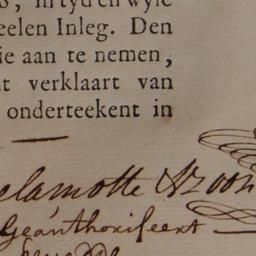 in tyd en wyle
eelen Inleg. Den
ie aan te nemen,
t verklaart van
onderteekent in
elamotte & Zoon
Geäuthoriseert